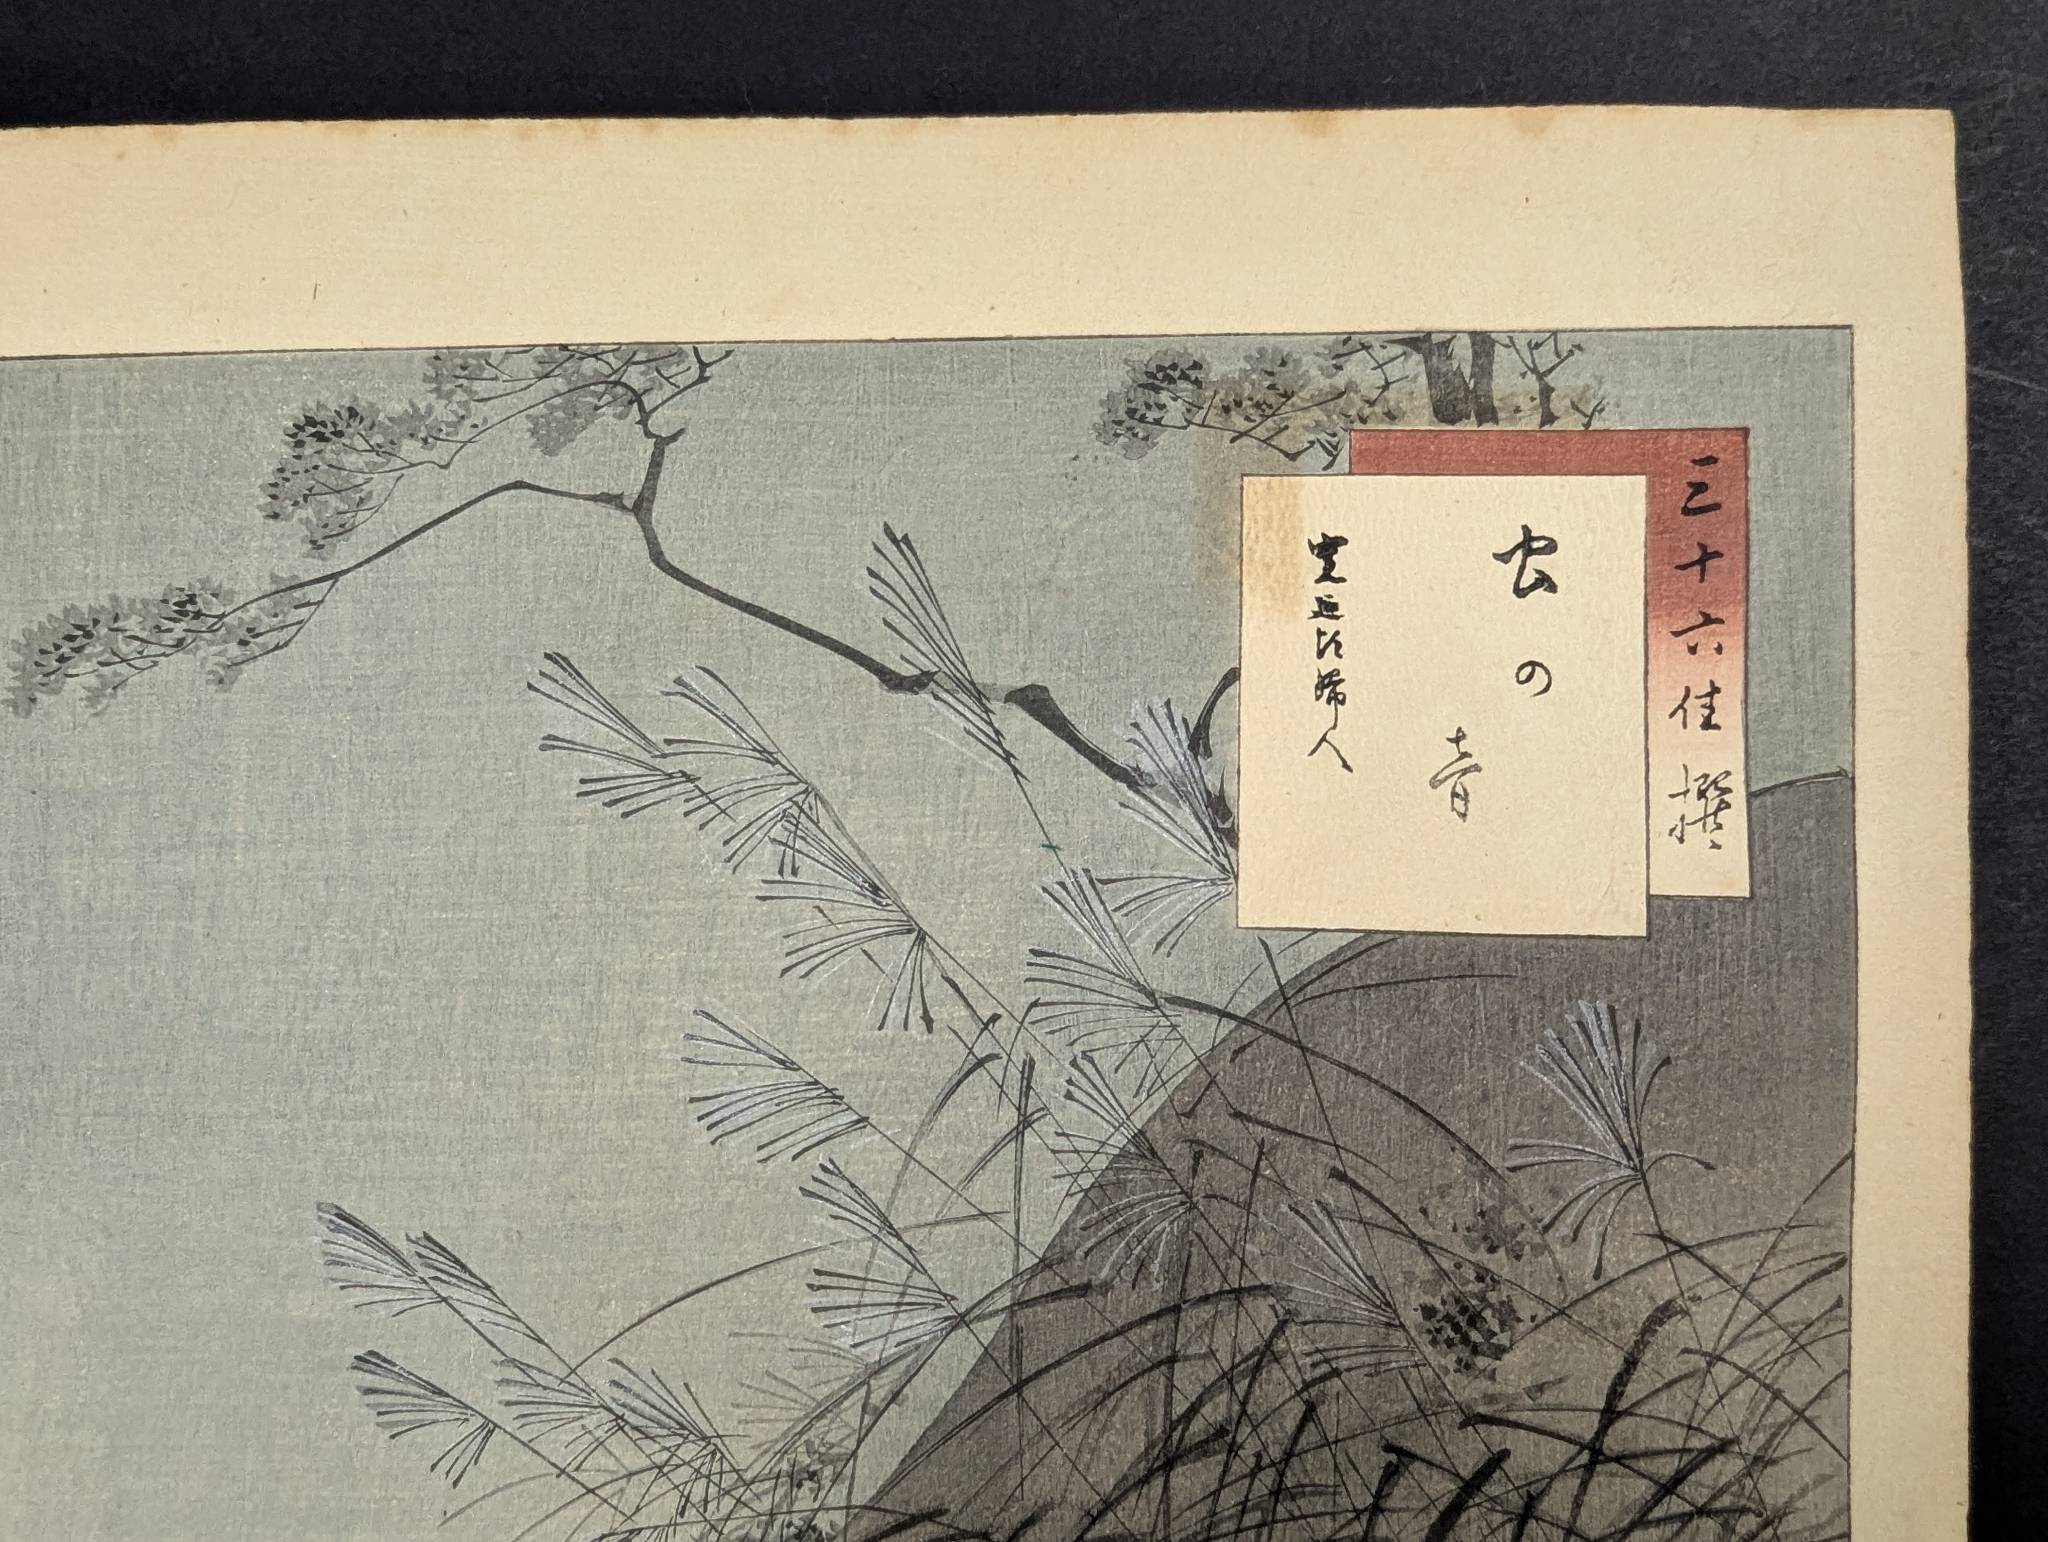 三十六佳撰
虫の音
寛延頃婦人